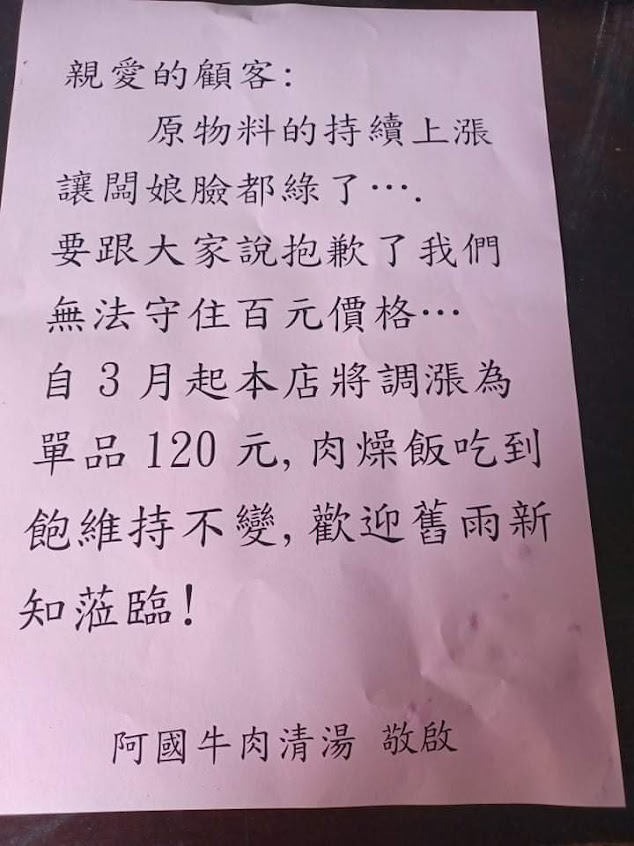 親愛的顧客:
原物料的持續上漲
讓闆娘臉都綠了….
要跟大家說抱歉了我們
無法守住百元價格…
自 3 月起本店將調漲為
單品 120 元, 肉燥飯吃到
飽維持不變, 歡迎舊雨新
知蒞臨!
阿國牛肉清湯 敬啟